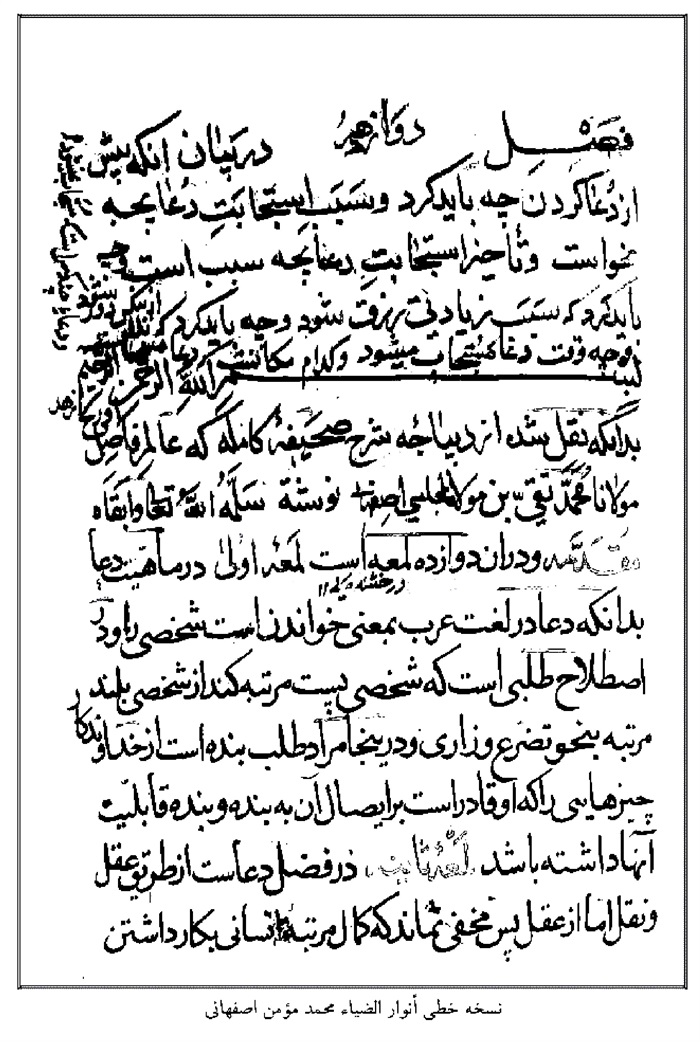 فصل دوازدهم در بیان آنکه پیش
از دعا کردن چه باید کرد و سبب استجابت دعا بچه
خواست و تأخیر استجابت دعا بچه سبب است و چه
باید کرد که سبب زیادتی رزق شود و چه باید کرد که
و چه وقت دعا مستجاب میشود و کدام مکانست دعا
بسم الله الرحمن الرحیم
بدانکه نقل شده از دیباجه شرح صحیفهٔ کامله که عالم فاضل
مولانا محمد تقی بن مولانا مجلسی اصفهانی نوشته سلمه الله تعالی وابقاه
مقدمه و در آن دوازده لمعه است لمعه اولی در ماهیت دعا
بدانکه دعا در لغت عرب بمعنی خواندن است شخصی را و در
اصطلاح طلبی است که شخصی پست مرتبه کند از شخصی بلند
مرتبه بنحو تضرع و زاری و در ینجا مراد طلب بنده است از خداوندکار
چیزهایی را که او قادر است بر ایصال آن به بنده و بنده قابلیت
آنها داشته باشد لمعهٔ ثانیه در فضل دعاست از طریق عقل
و نقل اما از عقل پس مخفی نماند که کمال مرتبهٔ انسانی بکار داشتن
نسخه خطی أنوار الضیاء محمد مؤمن اصفهانی